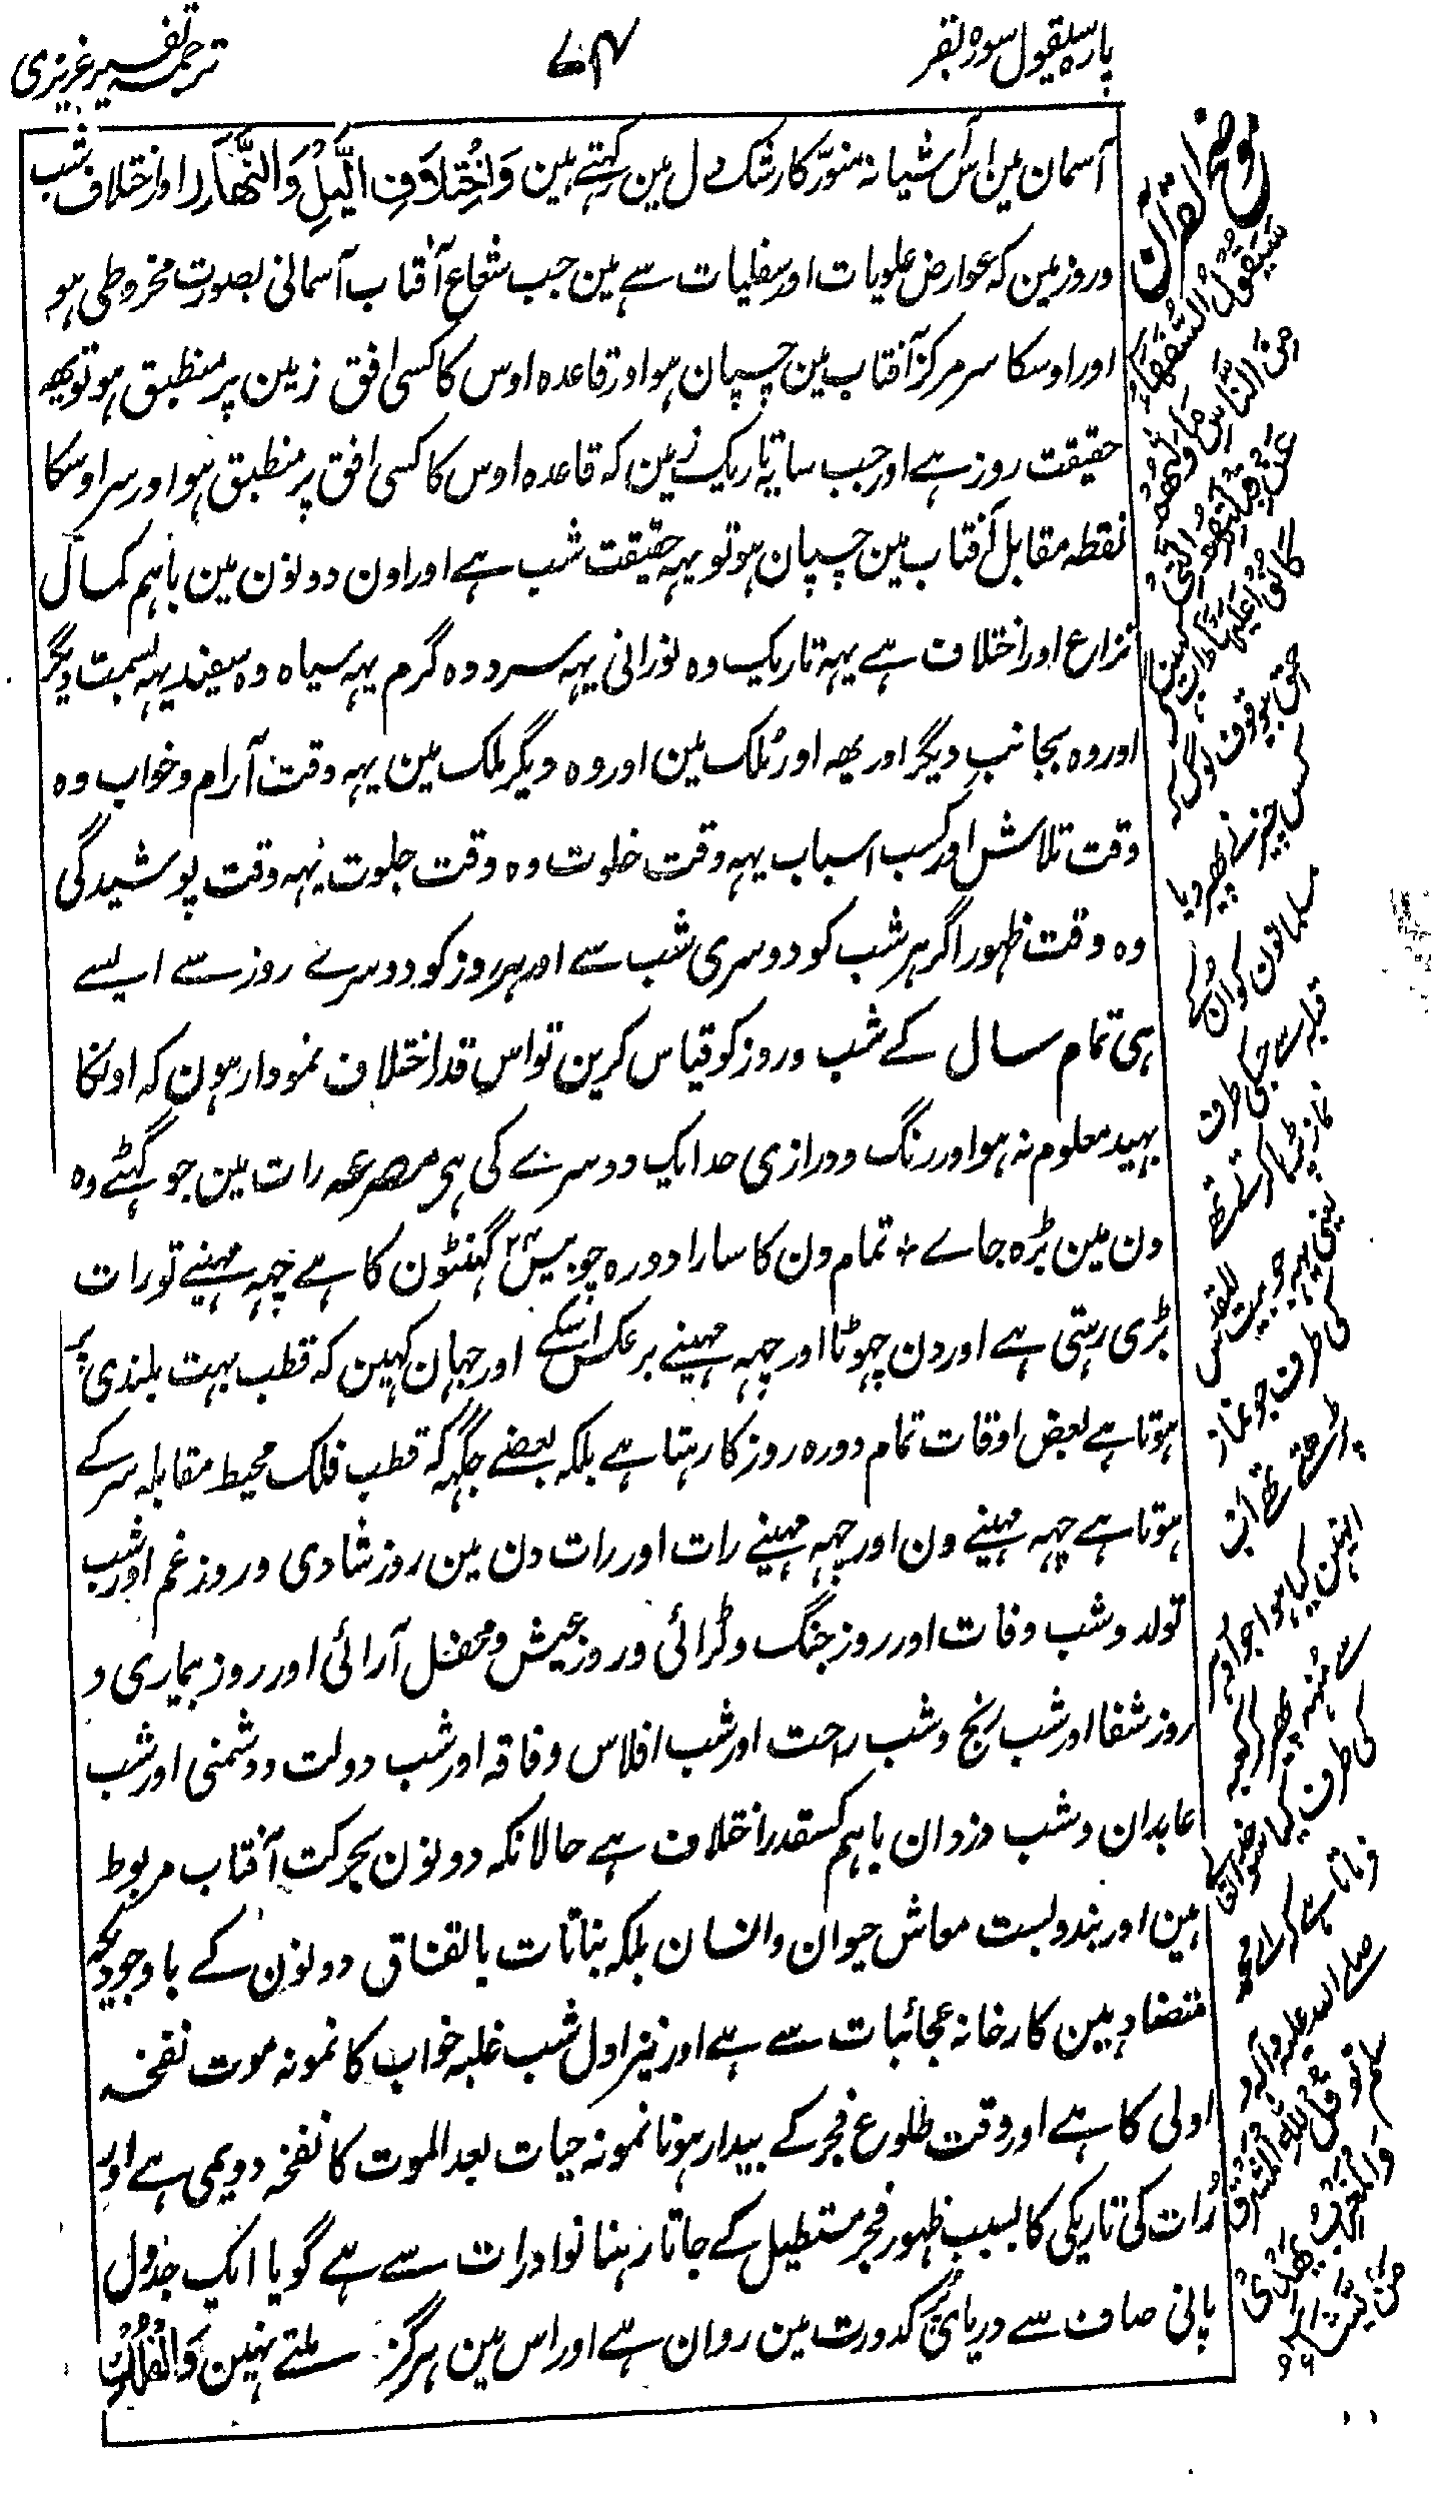 پارہ سیقول سورہ بقر
۷۴
ترجمہ تفسیر عزیزی
آسمان مین اس آشیانہ منوّر کا رشک دل مین رکہتے ہین وَاخْتِلَافِ الَّیْلِ وَالنَّھَارِ اور اختلاف شب
و روز مین کہ عوارض علویات اور سفلیات سے ہین جب شعاع آفتاب آسمانی بصورت مخروطی ہو
اور اوسکا سر مرکز آفتاب مین چسپان ہو اور قاعدہ اوس کا کسی افق زمین پر منطبق ہو تو یھہ
حقیقت روز ہے اور جب سایہ تاریک زمین کہ قاعدہ اوس کا کسی افق پر منطبق ہو اور سر اوسکا
نقطہ مقابل آفتاب مین چسپان ہو تو یہہ حقیقت شب ہے اور اون دونون مین باہم کمال
نزاع اور اختلاف ہے یہہ تاریک وہ نورانی یہہ سرد وہ گرم یہہ سیاہ وہ سفید یہہ بسمت دیگر
اور وہ بجانب دیگر اور یھہ اور مُلک مین اور وہ دیگر ملک مین یہہ وقت آرام و خواب وہ
وقت تلاش اور کسب اسباب یہہ وقت خلوت وہ وقت جلوت یہہ وقت پوشیدگی
وہ وقت ظہور اگر ہر شب کو دوسری شب سے اور ہر روز کو دوسرے روز سے ایسے
ہی تمام سال کے شب و روز کو قیاس کرین تو اس قدر اختلاف نمودار ہون کہ اونکا
بہید معلوم نہ ہو اور رنگ و درازی حد ایک دوسرے کی ہی مصرعہ رات مین جو گہٹے وہ
دن مین بڑہ جاے + تمام دن کا سارا دورہ چوبیس ۲۴ گہنٹون کا ہے چہہ مہینے تو رات
بڑی رہتی ہے اور دن چہوٹا اور چہہ مہینے برعکس اسکے اور جہان کہین کہ قطب بہت بلندی پر
ہوتا ہے بعض اوقات تمام دورہ روز کا رہتا ہے بلکہ بعضے جگہہ کہ قطب فلک محیط مقابلہ سر کے
ہوتا ہے چہہ مہینے دن اور چہہ مہینے رات اور رات دن مین روز شادی و روز غم اور شب
تولد و شب وفات اور روز جنگ و لڑائی و روز عیش و محفل آرائی اور روز بیماری و
روز شفا اور شب رنج و شب راحت اور شب افلاس و فاقہ اور شب دولت و دشمنی اور شب
عابدان و شب دزدان باہم کسقدر اختلاف ہے حالانکہ دونون بحرکت آفتاب مربوط
ہین اور بندوبست معاش حیوان و انسان بلکہ نباتات باتفاق دونون کے باوجودیکہ
متضاد ہین کارخانہ عجائبات سے ہے اور نیز اول شب غلبہ خواب کا نمونہ موت نفخہ
اولی کا ہے اور وقت طلوع فجر کے بیدار ہونا نمونہ حیات بعد الموت کا نفخہ دویمی ہے اور
رات کی تاریکی کا بسبب ظہور فجر مستطیل کے جاتا رہنا نوادرات سے ہے گویا ایک جدول
پانی صاف سے دریائے کدورت مین روان ہے اور اس مین ہرگز ملتے نہین وَالْفُلْكِ
موضح القرآن
سَیَقُوْلُ السُّفَھَآءُ
مِنَ النَّاسِ مَا وَلّٰھُمْ
عَنْ قِبْلَتِھِمُ الَّتِیْ
کَانُوْا عَلَیْھَا اب کہین گے
بیوقوف لوگ کہ
کس چیز نے پھیر دیا
مسلمانون کو اُن کے
قبلہ سے جسکی طرف
نماز پڑہا کرتے تھے
یعنی یہہ جو بیت المقدس
کی طرف جو نماز
پڑھتے تھے اب
انہین کیا ہوا جو اوس
سے منہ پھیر کر کعبہ
کی طرف کیا
فرماتا ہے کہ اے نبی
صلے اللہ علیہ و آلہ و
سلم تو قُلْ لِلّٰہِ الْمَشْرِقُ
وَالْمَغْرِبُ یَھْدِیْ
مَنْ یَّشَآءُ